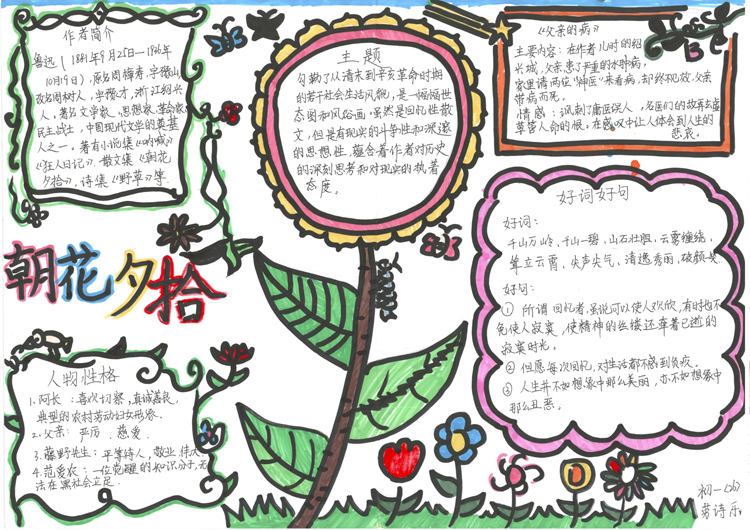 作者简介
鲁迅(1881年9月25日—1936年
10月19日),原名周樟寿,字豫山
改名周树人,字豫才,浙江绍兴
人,著名文学家、思想家,革命家
民主战士,中国现代文学的奠基
人之一。著有小说集《呐喊》
《狂人日记》、散文集《朝花
夕拾》,诗集《野草》等.
主题
勾勒了从清末到辛亥革命时期
的若干社会生活风貌,是一幅阔世
态图和风俗画.虽然是回忆性散
文,但是有现实的斗争性和深邃
的思想性,蕴含着作者对历史
的深刻思考和对现实的执着
态度。
《父亲的病》
主要内容:在作者儿时的绍
兴城,父亲患了严重的水肿病,
家里请两位"神医"来看病,却终不见效,父亲
带病而死。
情感:讽刺了庸医误人,名医们的故弄玄虚
草菅人命的候。在感叹中让人体会到人生的
悲哀.
朝花夕拾
好词好句
好词:
千山万岭,千山一碧,山石壮胆,云雾缠绕,
耸立云霄,尖声尖气,清逸秀丽,破颜
好句:
① 所谓回忆者,虽说可以使人欢欣,有时也不
免使人寂寞,使精神的丝缕还牵着已逝的
寂寞时光。
② 但愿每次回忆,对生活都不感到负疚。
③ 人生并不如想象中那么美丽,亦不如想象中
那么丑恶。
人物性格
1.阿长:喜欢切察,真诚善良,
典型的农村劳动妇女形象.
2.父亲:严厉、慈爱.
3.藤野先生:平等待人,敬业 伟大
4.范爱农:一位觉醒的知识分子,无
法在黑社会立足.
初一(6)
劳诗乐